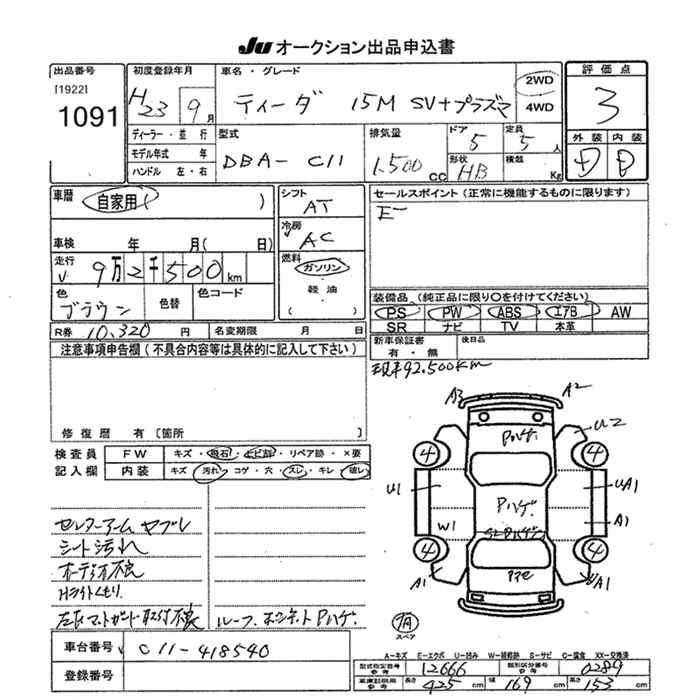 JU オークション出品申込書
出品番号
[1922]
1091
初度登録年月
H23 9月
車名・グレード
ティーダ 15M SV+プラズマ
2WD
4WD
評価点
3
ディーラー・並 行
モデル年式 年
ハンドル 左・右
型式
DBA- C11
排気量
1.500 CC
ドア
5
形状
HB
定員
5 人
積載
Kg
外装 内装
D D
車歴
自家用 ( )
シフト
AT
冷房
AC
車検 年 月( 日)
走行
9万2千500km
燃料
ガソリン
軽油
( )
色
ブラウン
色替
色コード
R券 10,320 円
名変期限 月 日
セールスポイント(正常に機能するものに限ります)
装備品(純正品に限り○を付けてください)
PS PW ABS エアB AW
SR ナビ TV 本革
新車保証書
有・無
後日品
現車92.500km
注意事項申告欄(不具合内容等は具体的に記入して下さい)
修復歴 有〔箇所 〕
検査員
記入欄
FW キズ・飛石・とび割・リペア跡・×要
内装 キズ・汚れ・コゲ・穴・スレ・キレ・破レ
センターアームヤブレ
シート汚れ
オーディオ不良
Hライトくもり
左Rマットガード取付不良
ルーフ.ボンネットPハゲ.
A3
A2
Pハゲ.
U2
4
4
U1
UA1
Pハゲ.
W1
A1
4
4
A1
UA1
スペア
車台番号 C11-418540
登録番号
A-キズ E-エクボ U-凹み W-補修跡 S-サビ C-腐食 XX-交換済
型式指定番号
参考
12666
類別区分番号
参考
0289
車庫証明用
参考
長さ 425 cm
幅 169 cm
高さ 153 cm